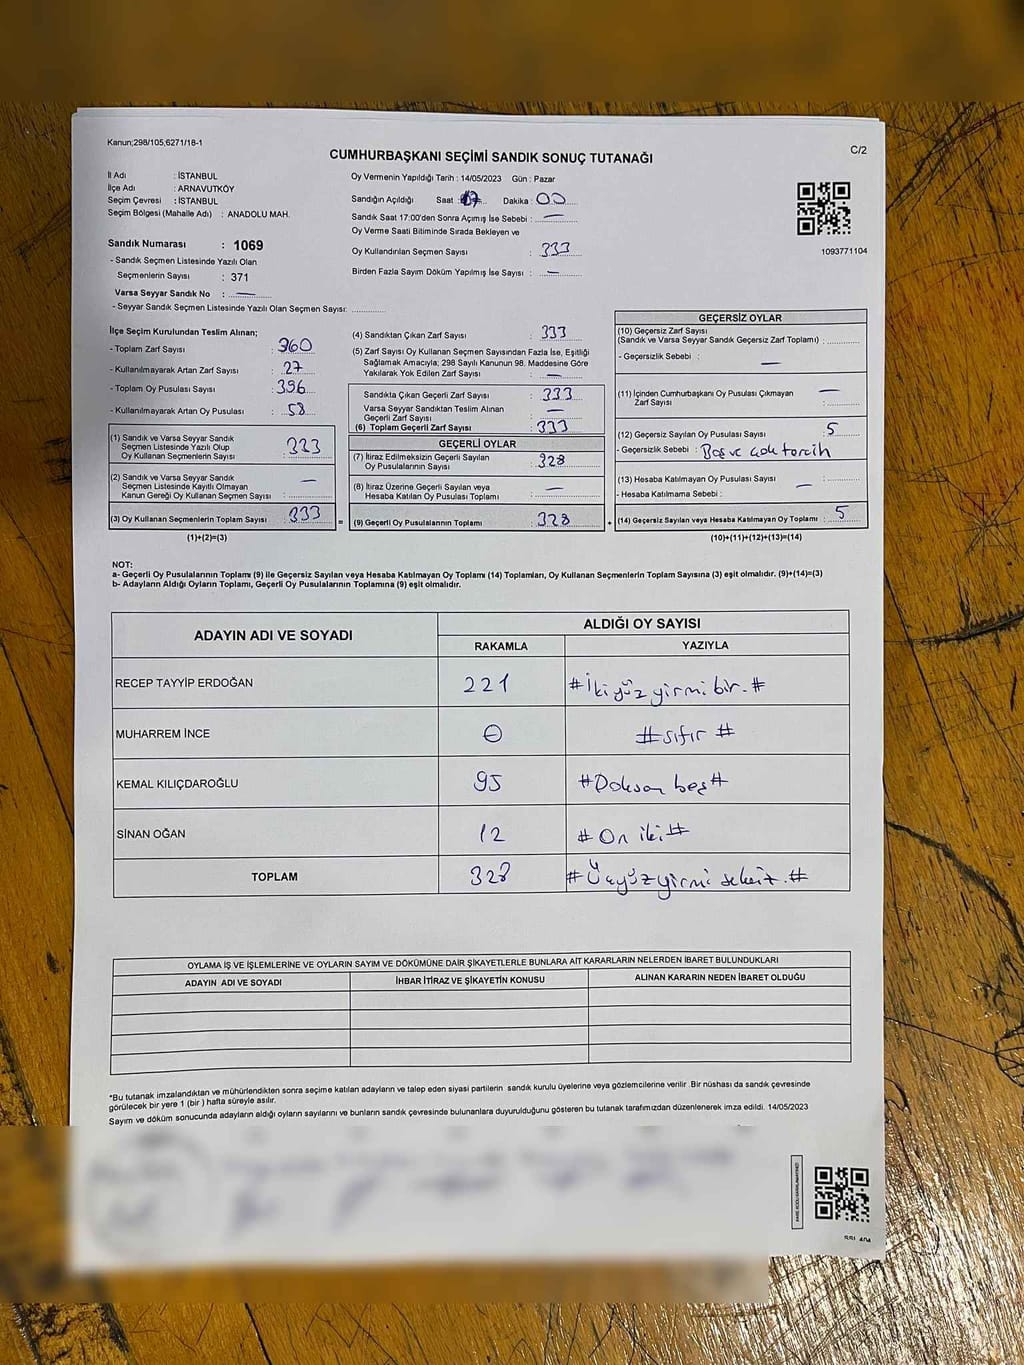 Kanun;298/105,6271/16-1
C/2
CUMHURBAŞKANI SEÇİMİ SANDIK SONUÇ TUTANAĞI
İl Adı : İSTANBUL
İlçe Adı : ARNAVUTKÖY
Seçim Çevresi : İSTANBUL
Seçim Bölgesi (Mahalle Adı) : ANADOLU MAH.
Sandık Numarası : 1069
- Sandık Seçmen Listesinde Yazılı Olan
Seçmenlerin Sayısı : 371
Varsa Seyyar Sandık No : —
- Seyyar Sandık Seçmen Listesinde Yazılı Olan Seçmen Sayısı: ..............
Oy Vermenin Yapıldığı Tarih : 14/05/2023 Gün : Pazar
Sandığın Açıldığı Saat : 17 Dakika : 00
Sandık Saat 17:00'den Sonra Açımış İse Sebebi : —
Oy Verme Saati Bitiminde Sırada Bekleyen ve
Oy Kullandırılan Seçmen Sayısı : 333
Birden Fazla Sayım Döküm Yapılmış İse Sayısı : —
1093771104
İlçe Seçim Kurulundan Teslim Alınan;
- Toplam Zarf Sayısı : 360
- Kullanılmayarak Artan Zarf Sayısı : 27
- Toplam Oy Pusulası Sayısı : 396
- Kullanılmayarak Artan Oy Pusulası : 58
(1) Sandık ve Varsa Seyyar Sandık
Seçmen Listesinde Yazılı Olup
Oy Kullanan Seçmenlerin Sayısı : 333
(2) Sandık ve Varsa Seyyar Sandık
Seçmen Listesinde Kayıtlı Olmayan
Kanun Gereği Oy Kullanan Seçmen Sayısı : —
(3) Oy Kullanan Seçmenlerin Toplam Sayısı : 333
(1)+(2)=(3)
(4) Sandıktan Çıkan Zarf Sayısı : 333
(5) Zarf Sayısı Oy Kullanan Seçmen Sayısından Fazla İse, Eşitliği
Sağlamak Amacıyla; 298 Sayılı Kanunun 98. Maddesine Göre
Yakılarak Yok Edilen Zarf Sayısı : —
Sandıkta Çıkan Geçerli Zarf Sayısı : 333
Varsa Seyyar Sandıktan Teslim Alınan
Geçerli Zarf Sayısı : —
(6) Toplam Geçerli Zarf Sayısı : 333
GEÇERLİ OYLAR
(7) İtiraz Edilmeksizin Geçerli Sayılan
Oy Pusulalarının Sayısı : 328
(8) İtiraz Üzerine Geçerli Sayılan veya
Hesaba Katılan Oy Pusulası Toplamı : —
= (9) Geçerli Oy Pusulalarının Toplamı : 328 +
GEÇERSİZ OYLAR
(10) Geçersiz Zarf Sayısı
(Sandık ve Varsa Seyyar Sandık Geçersiz Zarf Toplamı) : ..............
- Geçersizlik Sebebi : —
(11) İçinden Cumhurbaşkanı Oy Pusulası Çıkmayan
Zarf Sayısı : —
(12) Geçersiz Sayılan Oy Pusulası Sayısı : 5
- Geçersizlik Sebebi : Boş ve çok tercih
(13) Hesaba Katılmayan Oy Pusulası Sayısı : —
- Hesaba Katılmama Sebebi :
(14) Geçersiz Sayılan veya Hesaba Katılmayan Oy Toplamı : 5
(10)+(11)+(12)+(13)=(14)
NOT:
a- Geçerli Oy Pusulalarının Toplamı (9) ile Geçersiz Sayılan veya Hesaba Katılmayan Oy Toplamı (14) Toplamları, Oy Kullanan Seçmenlerin Toplam Sayısına (3) eşit olmalıdır. (9)+(14)=(3)
b- Adayların Aldığı Oyların Toplamı, Geçerli Oy Pusulalarının Toplamına (9) eşit olmalıdır.
ADAYIN ADI VE SOYADI ALDIĞI OY SAYISI
RAKAMLA YAZIYLA
RECEP TAYYİP ERDOĞAN 221 #İkiyüz yirmi bir.#
MUHARREM İNCE 0 #sıfır #
KEMAL KILIÇDAROĞLU 95 #Doksan beş#
SİNAN OĞAN 12 #On iki#
TOPLAM 328 #Üçyüz yirmi sekiz.#
OYLAMA İŞ VE İŞLEMLERİNE VE OYLARIN SAYIM VE DÖKÜMÜNE DAİR ŞİKAYETLERLE BUNLARA AİT KARARLARIN NELERDEN İBARET BULUNDUKLARI
ADAYIN ADI VE SOYADI İHBAR İTİRAZ VE ŞİKAYETİN KONUSU ALINAN KARARIN NEDEN İBARET OLDUĞU
*Bu tutanak imzalandıktan ve mühürlendikten sonra seçime katılan adayların ve talep eden siyasi partilerin sandık kurulu üyelerine veya gözlemcilerine verilir .Bir nüshası da sandık çevresinde
görülecek bir yere 1 (bir ) hafta süreyle asılır.
Sayım ve döküm sonucunda adayların aldığı oyların sayılarını ve bunların sandık çevresinde bulunanlara duyurulduğunu gösteren bu tutanak tarafımızdan düzenlenerek imza edildi. 14/05/2023